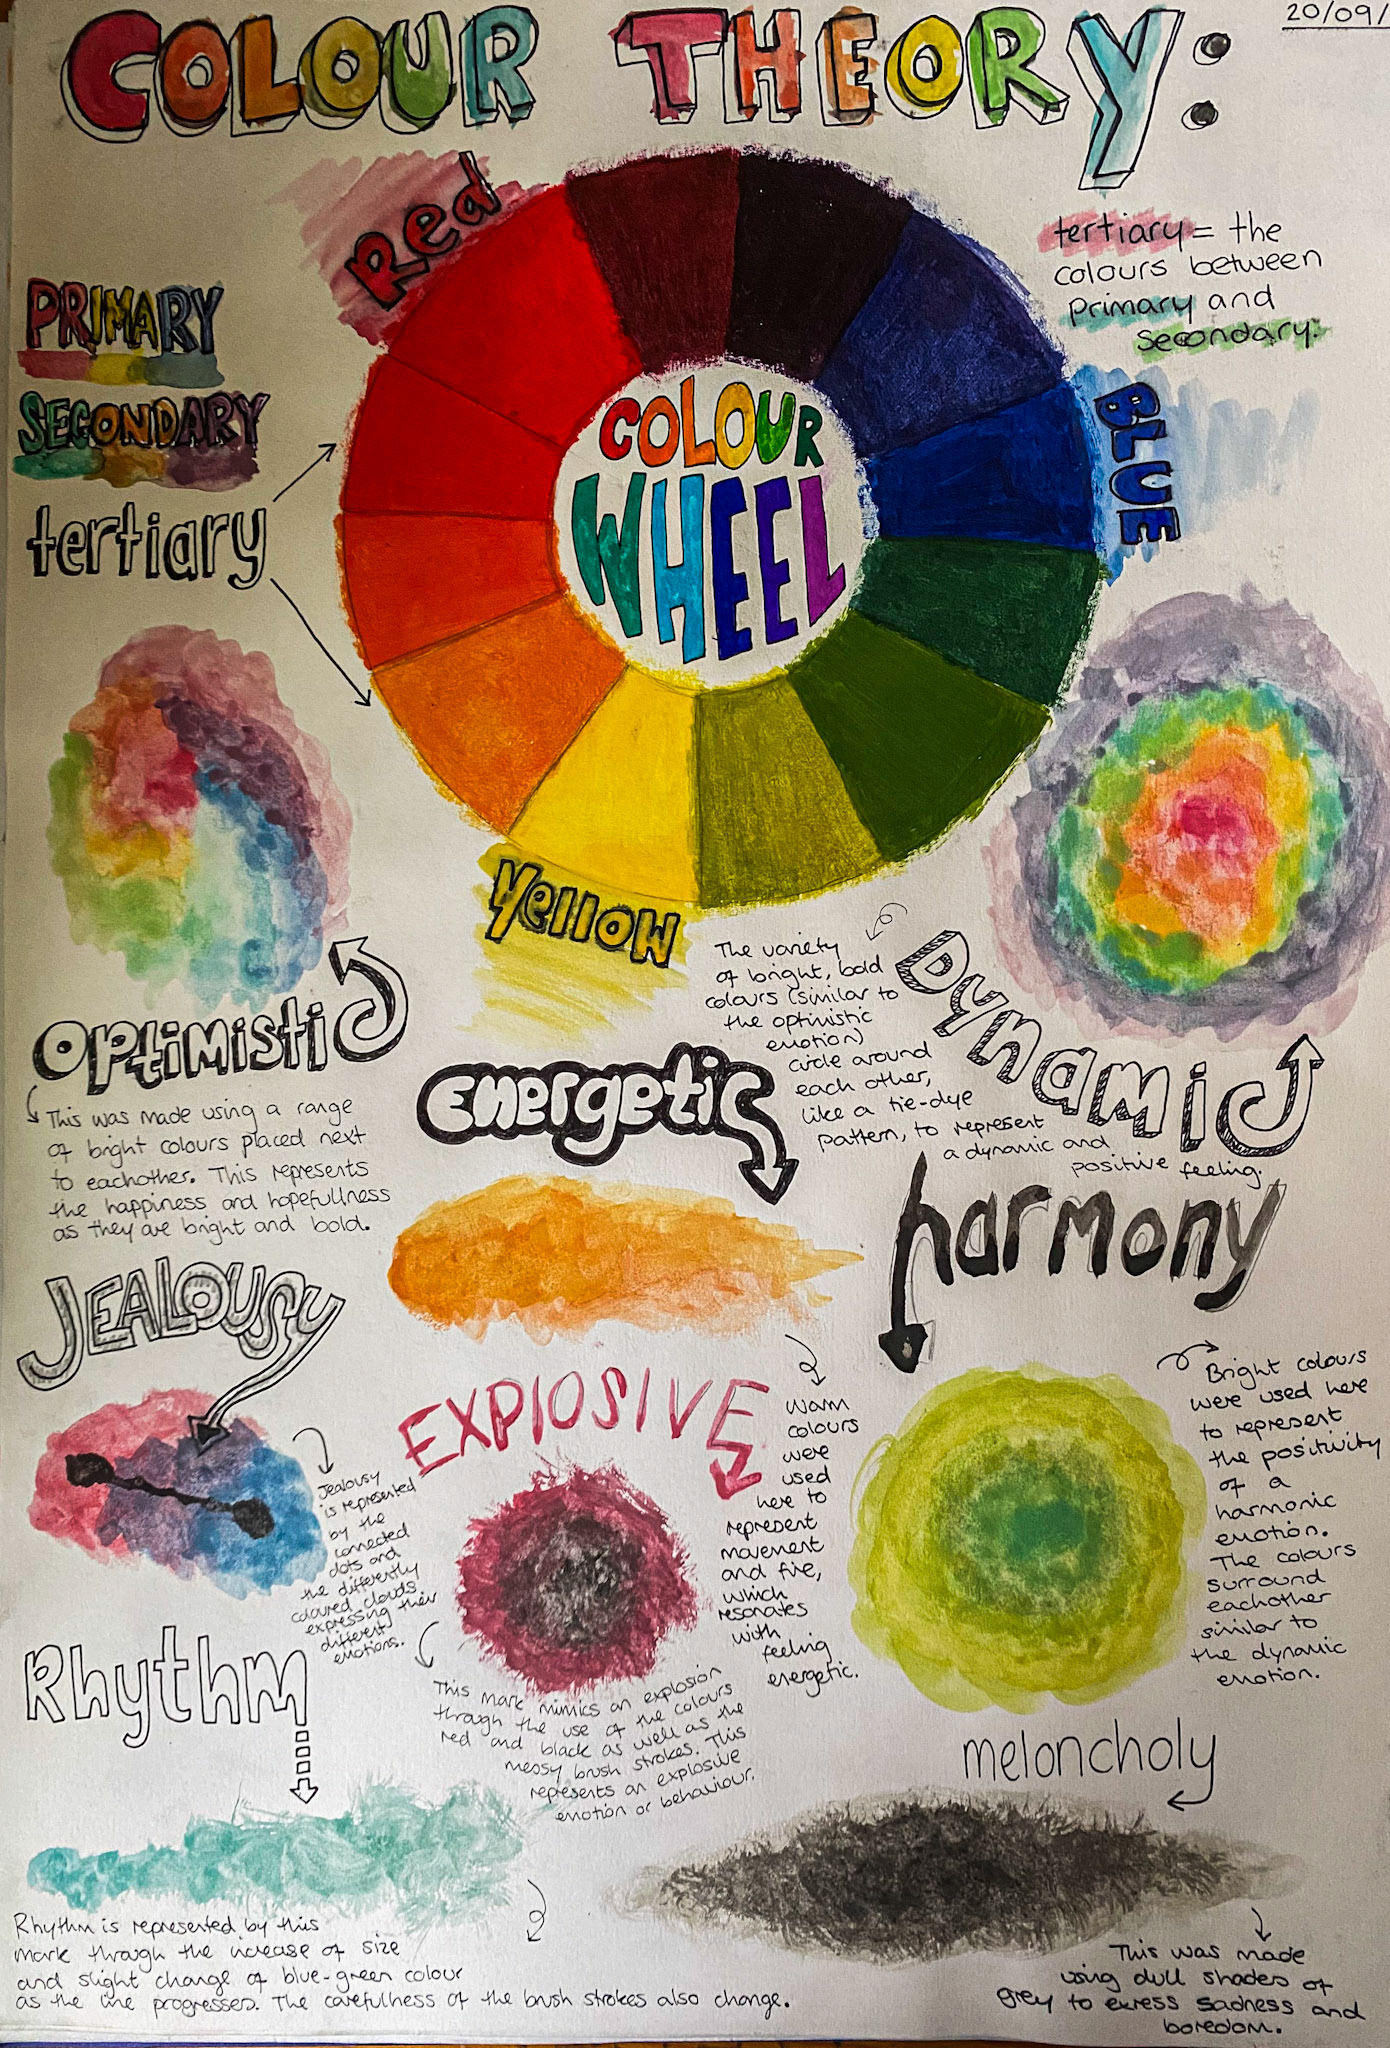 20/09/
COLOUR THEORY:
Red
PRIMARY
SECONDARY
tertiary
tertiary = the
colours between
primary and
secondary.
COLOUR
WHEEL
BLUE
Yellow
The variety
of bright, bold
colours (similar to
the optimistic
emotion)
circle around
each other,
like a tie-dye
pattern, to represent
a dynamic and
positive feeling.
Dynamic
Optimistic
This was made using a range
of bright colours placed next
to eachother. This represents
the happiness and hopefullness
as they are bright and bold.
Energetic
Warm
colours
were
used
here to
represent
movement
and fire,
which
resonates
with
feeling
energetic.
harmony
Bright colours
were used here
to represent
the positivity
of a
harmonic
emotion.
The colours
surround
eachother
similar to
the dynamic
emotion.
JEALOUSY
Jealousy
is represented
by the
connected
dots and
the differently
coloured clouds
expressing their
different
emotions.
EXPLOSIVE
This mark mimics an explosion
through the use of the colours
red and black as well as the
messy brush strokes. This
represents an explosive
emotion or behaviour.
Rhythm
Rhythm is represented by this
mark through the increase of size
and slight change of blue-green colour
as the line progresses. The carefulness of the brush strokes also change.
meloncholy
This was made
using dull shades of
grey to exress sadness and
boredom.